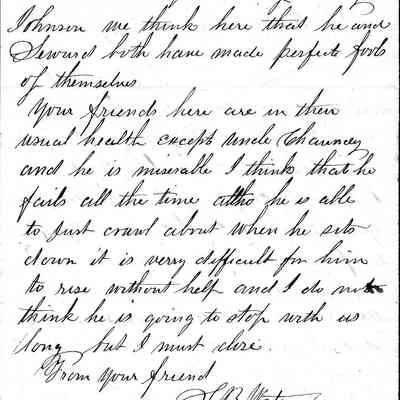 Johnson we think here that he and
Seward both have made perfect fools
of themselves
Your friends here are in their
usual health except Uncle Chauncey
and he is miserable I think that he
fails all the time altho he is able
to just crawl about when he sits
down it is verry difficult for him
to rise without help and I do not
think he is going to stop with us
long but I must close.
From Your friend